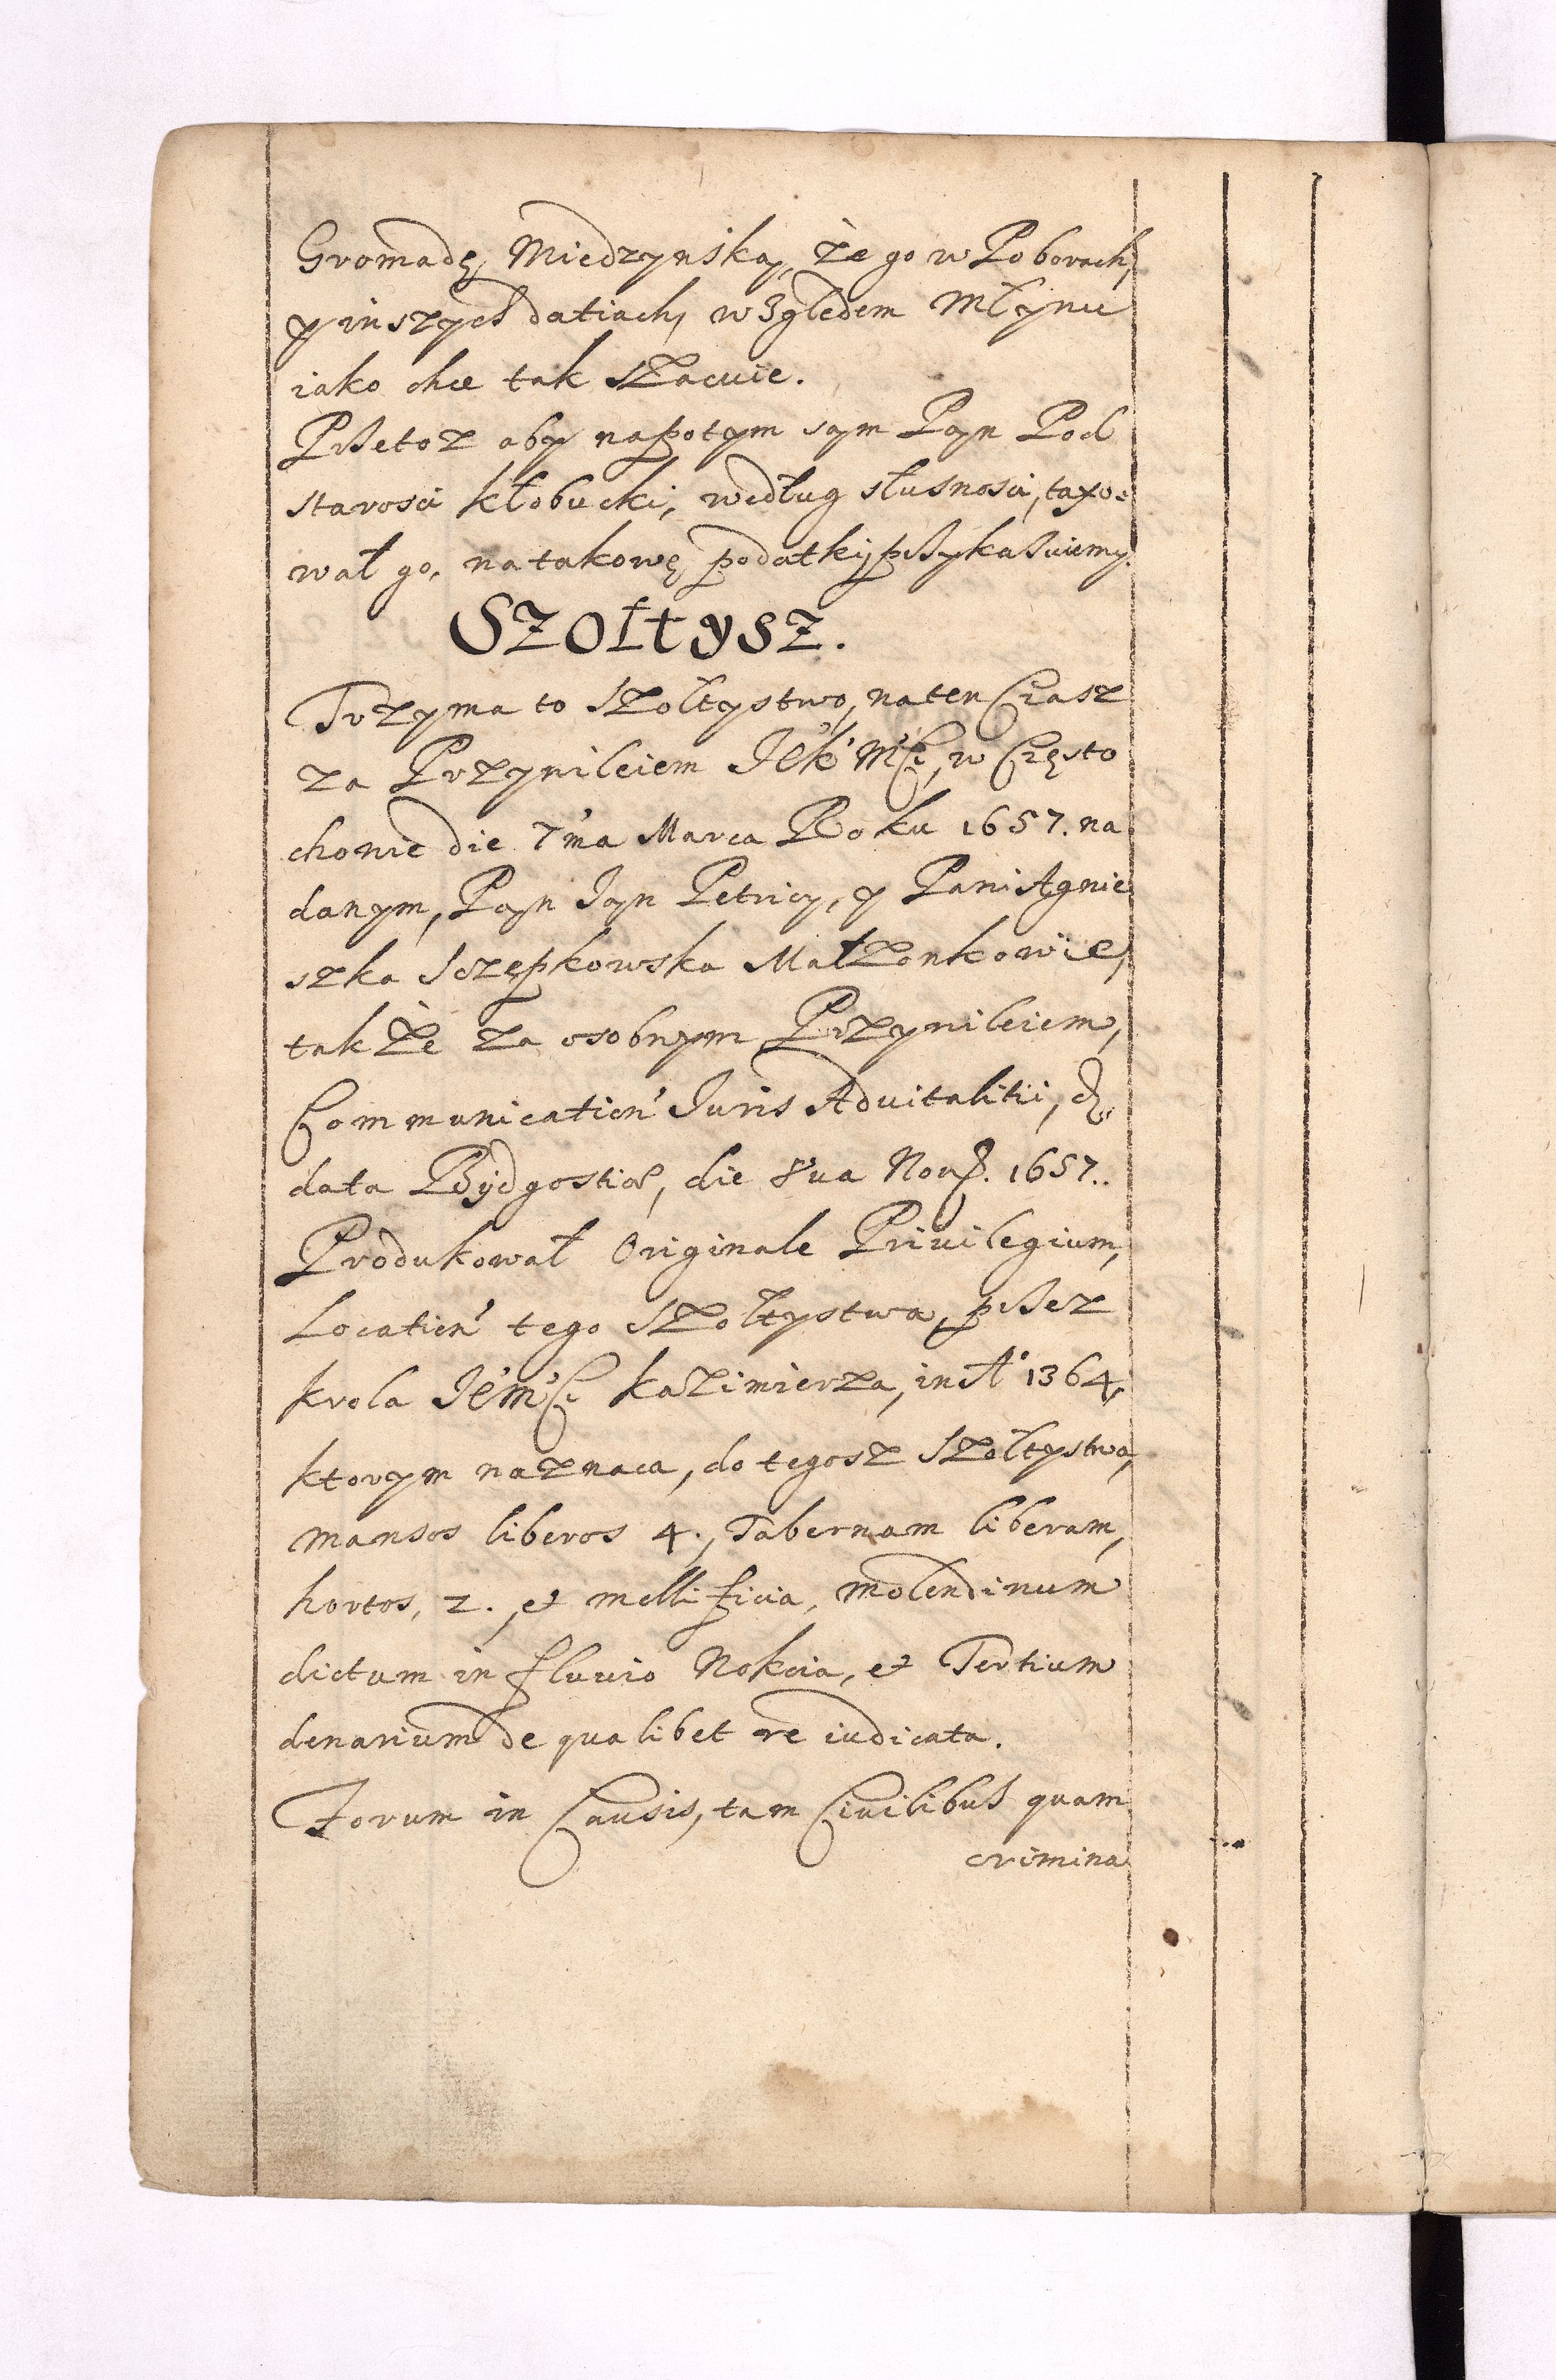 Gromadę Miedzynską, że go w Poborach,
y inszych datiach, względem Młynu
iako chce tak szacuie.
Przetoz aby napotym sąm Pąn Pod
starosci kłobucki, według słusnosci, taxo-
wał go, na takowe podatki, przykazuiemy.
Szołtysz.
Trzyma to Szołtystwo, na ten Czasz
za Przywileiem JeKMCi, w Często
chowie die 7ma Marca Roku 1657. na
danym, Pąn Ján Petricy, y Pani Agnie
szka Sczepkowska Małzonkowie,
także za osobnym Przywileiem,
Communication Juris Aduitalitii, de
data Bydgostiæ, die 8ua Nouĕ. 1657.
Produkował Originale Priuilegium,
Location tego Szołtystwa, przez
krola JeMCi Kazimierza, in A° 1364,
ktorym naznaca, do tegosz Szołtystwa,
mansos liberos 4., Tabernam liberam,
hortos, 2., et mellificia, molendinum
dictum in fluuio Nokcia, et Tertium
denarium de qualibet re iudicata.
Forum in Causis, tam Ciuilibus quam
crimina